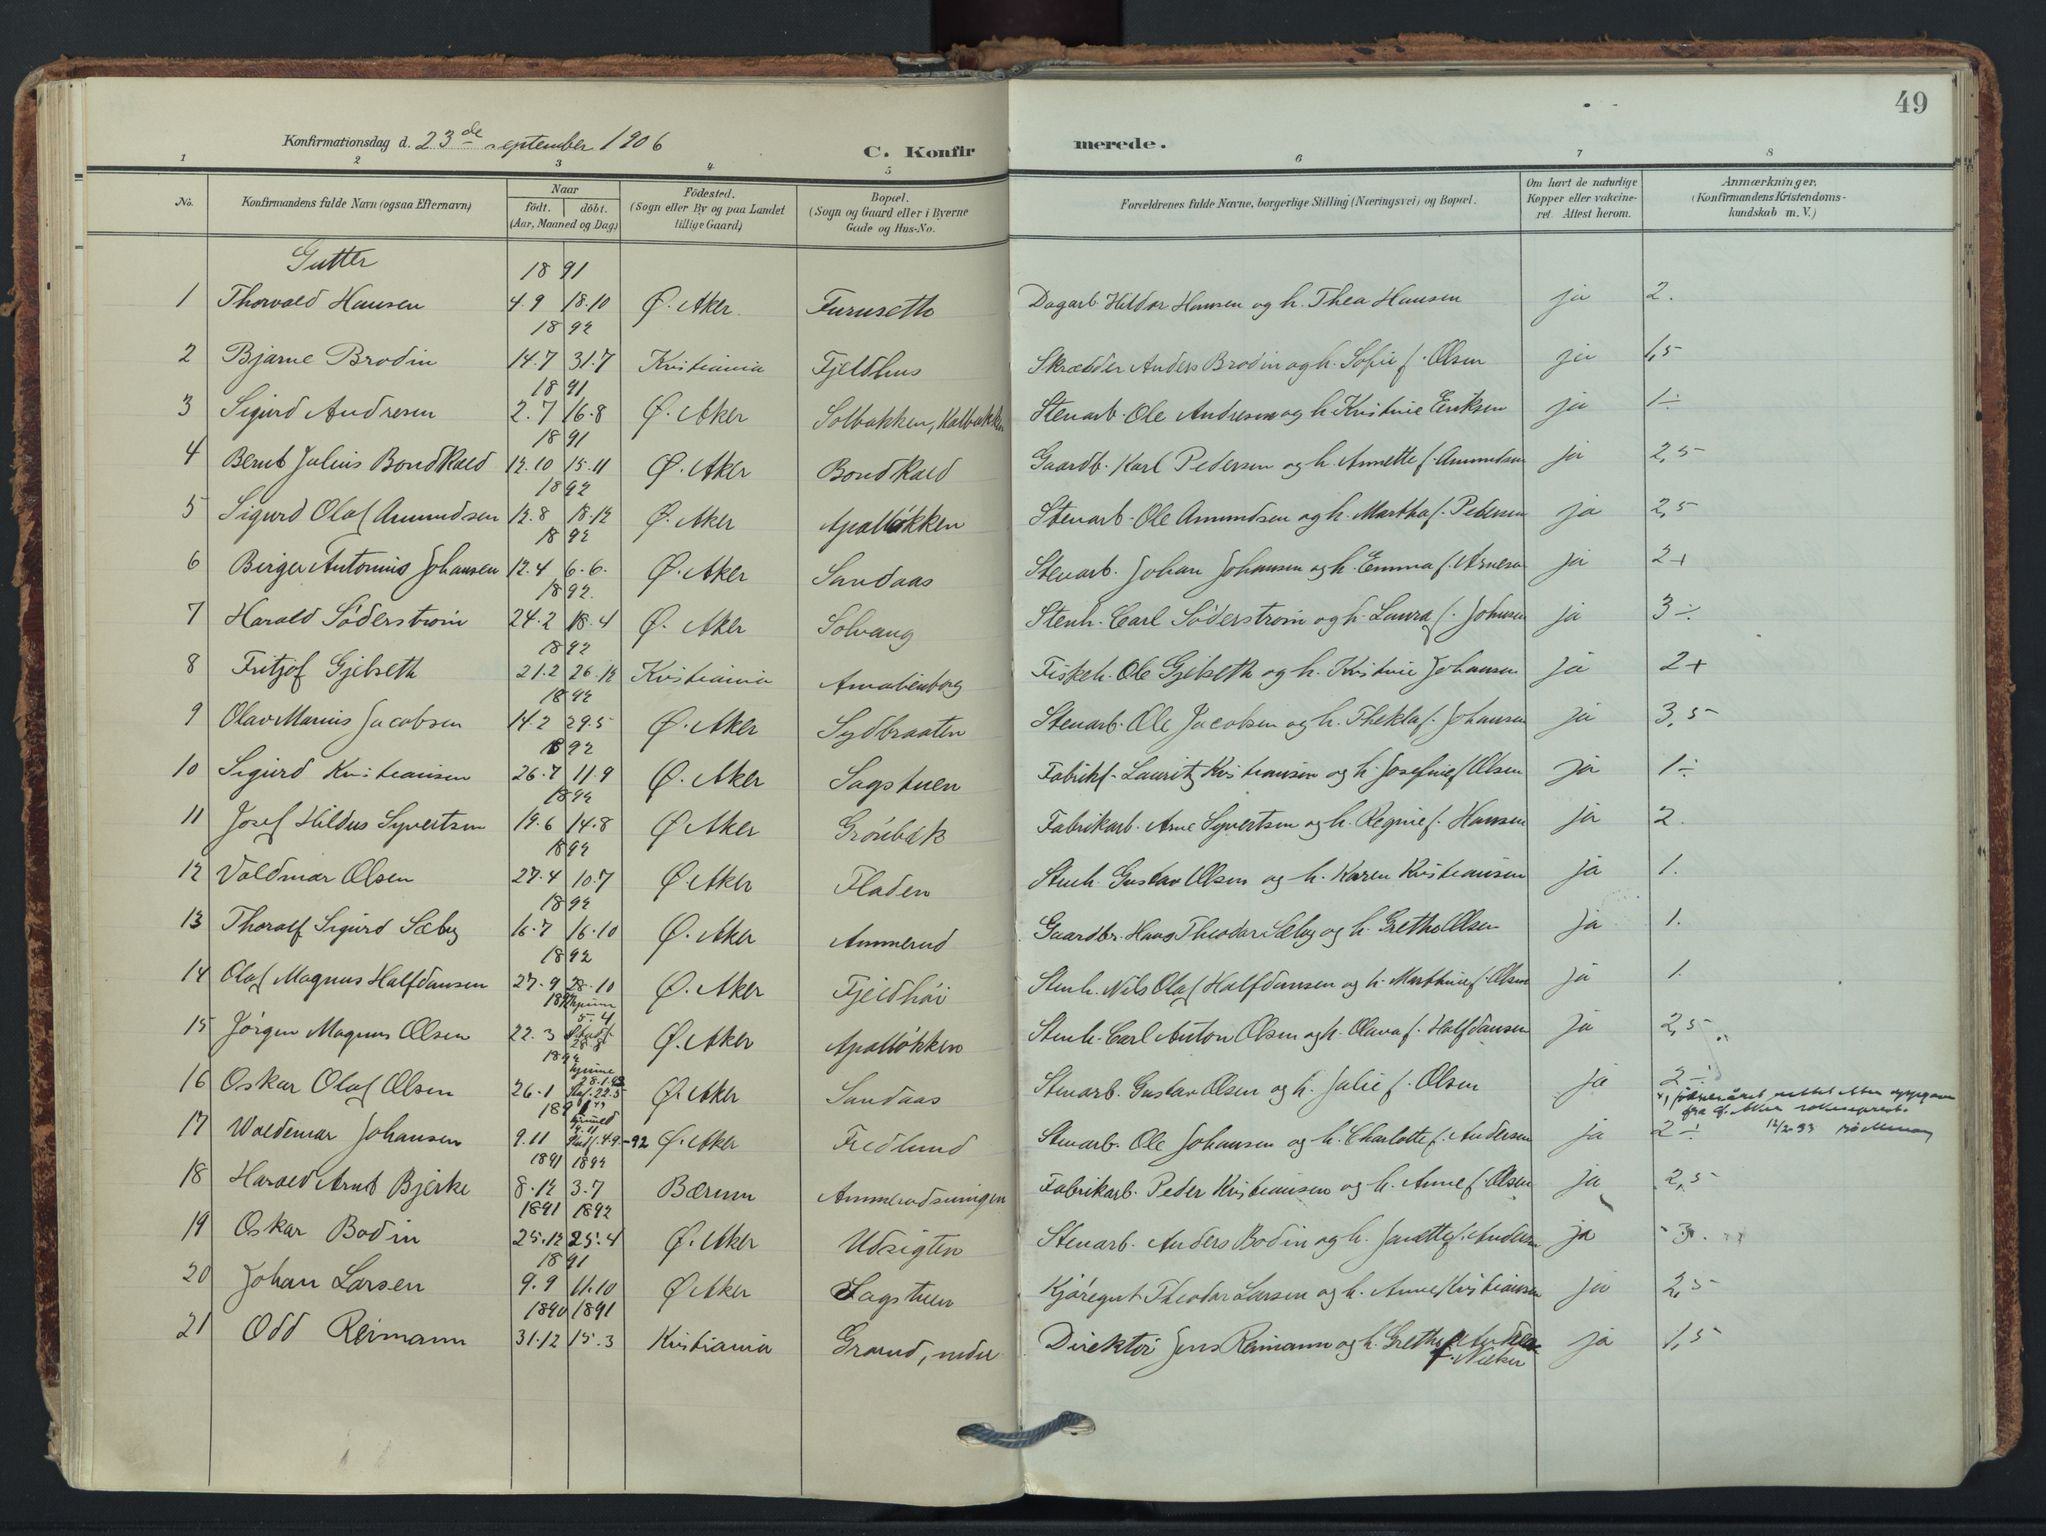 49
Konfirmationsdag d. 23de september 1906
C. Konfirmerede.
1 2 3 4 5 6 7 8
No. Konfirmandens fulde Navn (ogsaa Efternavn) Naar födt. döbt. (Aar, Maaned og Dag) Födested. (Sogn eller By og paa Landet tillige Gaard) Bopæl. (Sogn og Gaard eller i Byerne Gade og Hus-No. Forældrenes fulde Navne, borgerlige Stilling (Næringsvei) og Bopæl. Om havt de naturlige Kopper eller vakcineret. Attest herom. Anmærkninger. (Konfirmandens Kristendomskundskab m. V.)
Gutter
1891
1 Thorvald Hansen 4.9 18.10 Ø. Aker Furuseth Dagarb. Hildor Hansen og h. Thea Hansen ja 2.
1892
2 Bjarne Brodin 14.7 31.7 Kristiania Fjeldhus Skrædder Anders Brodin og h. Sofie f. Olsen ja 1,5
1891
3 Sigurd Andresen 2.7 16.8 Ø. Aker Solbakken, Kalbakken Stenarb. Ole Andresen og h. Kristine Eriksen ja 1÷
1891
4 Bernt Julius Bondkald 12.10 15.11 Ø. Aker Bondkald Gaardb. Karl Pedersen og h. Annette f. Amundsen ja 2,5
1892
5 Sigurd Olaf Amundsen 12.8 18.12 Ø. Aker Apalløkken Stenarb. Ole Amundsen og h. Martha f. Pedersen ja 2,5
1892
6 Birger Antonius Johansen 12.4 6.6. Ø. Aker Sandaas Stenarb. Johan Johansen og h. Emma f. Arnesen ja 2+
1892.
7 Harald Söderström 24.2 18.4 Ø. Aker Solvang Stenh. Carl Söderström og h. Laura f. Johnsen ja 3÷
1892
8 Fritjof Gjelseth 21.2 26.12 Kristiania Amalienborg Fiskeh. Ole Gjelseth og h. Kristine Johansen ja 2+
1892
9 Olav Marius Jacobsen 14.2 29.5 Ø. Aker Sydbraaten Stenarb. Ole Jacobsen og h. Thekla f. Johansen ja 3,5
1892
10 Sigurd Kristiansen 26.7 11.9 Ø. Aker Sagstuen Fabrikf. Lauritz Kristiansen og h. Josefine f. Olsen ja 1÷
1892
11 Josef Hildus Syvertsen 19.6 14.8 Ø. Aker Grönbæk Fabrikarb. Arne Syvertsen og h. Regine f. Hansen ja 2.
1892
12 Valdmar Olsen 27.4 10.7 Ø. Aker Fladen Stenh. Gustav Olsen og h. Karen Kristiansen ja 1.
1892
13 Thoralf Sigurd Sæby 16.7 16.10 Ø. Aker Ammerud Gaardbr. Hans Theodor Sæby og h. Grethe Olsen ja 1.
1892
14 Olaf Magnus Halfdansen 27.9 28.10 Ø. Aker Fjeldhöi Stenh. Nils Olaf Halfdansen og h. Marthine f. Olsen ja 1.
1892 hjemme 5.4
15 Jörgen Magnus Olsen 22.3 Stadf. 28.8 Ø. Aker Apalløkken Stenh. Carl Anton Olsen og h. Olava f. Halfdansen ja 2,5
1892 hjemme 28.1.92
16 Oskar Olaf Olsen 26.1 Staf. 22.5 Ø. Aker Sandaas Stenarb. Gustav Olsen og h. Julie f. Olsen ja 2÷
1891
17 Waldemar Johansen 9.11 Stadf. 4.9.-92 Ø. Aker Fredlund Stenarb. Ole Johansen og h. Charlotte f. Andersen ja 2÷
fødselsåret rettet etter oppgave fra Ø. Aker sokneprest.
1891 1892
18 Harald Arnt Bjerke 8.12 3.7 Bærum Ammerudsvingen Fabrikarb. Peder Kristiansen og h. Anne f. Olsen ja 2,5
1891 1892
19 Oskar Bodin 25.12 25.4 Ø. Aker Udsigten Stenarb. Anders Bodin og h. Janette f. Andersen ja 3.
1891
20 Johan Larsen 9.9 11.10 Ø. Aker Sagstuen Kjöregut Theodor Larsen og h. Anne Kristiansen ja 2,5
1890 1891
21 Odd Reimann 31.12 15.3 Kristiania Grorud, nedre Direktör Jens Reimann og h. Grethe ja 1,5